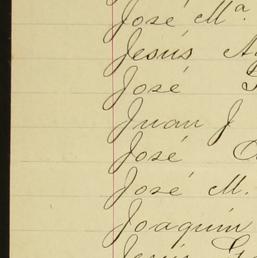 José Mª.
Jesús
José
Juan J
José
José M.
Joaquín
Jesús